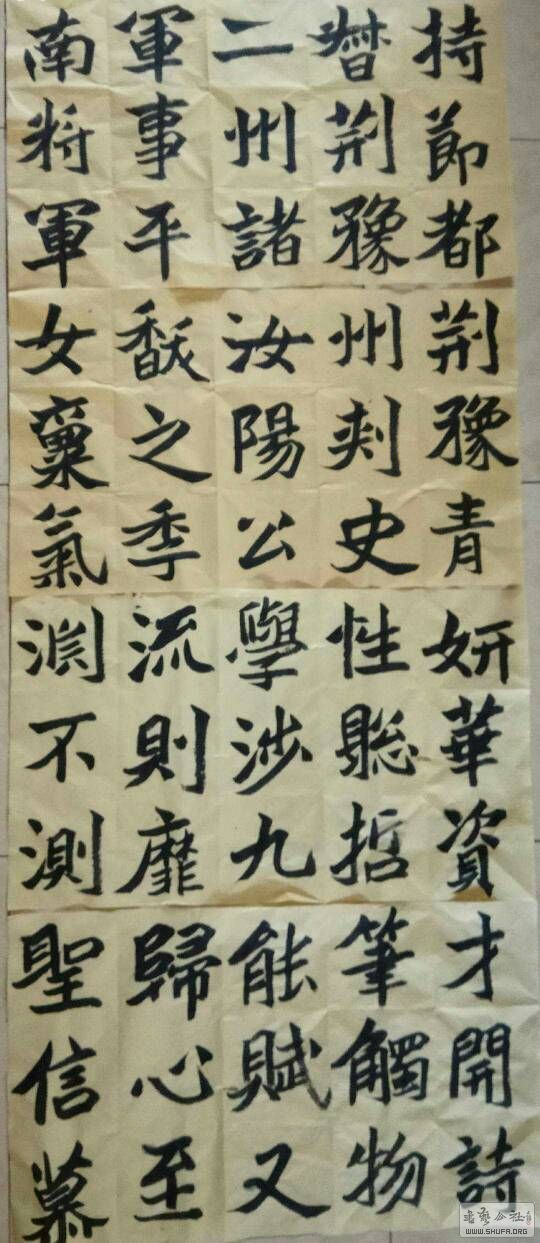 持節都
督荆豫
二州諸
軍事平
南将軍
荆豫青
州刾史
汝陽公
馥之季
女稟氣
妍華資
性聡哲
學涉九
流則靡
渕不測
才開詩
筆觸物
能賦又
歸心至
聖信慕
書藝公社
WWW.SHUFA.ORG